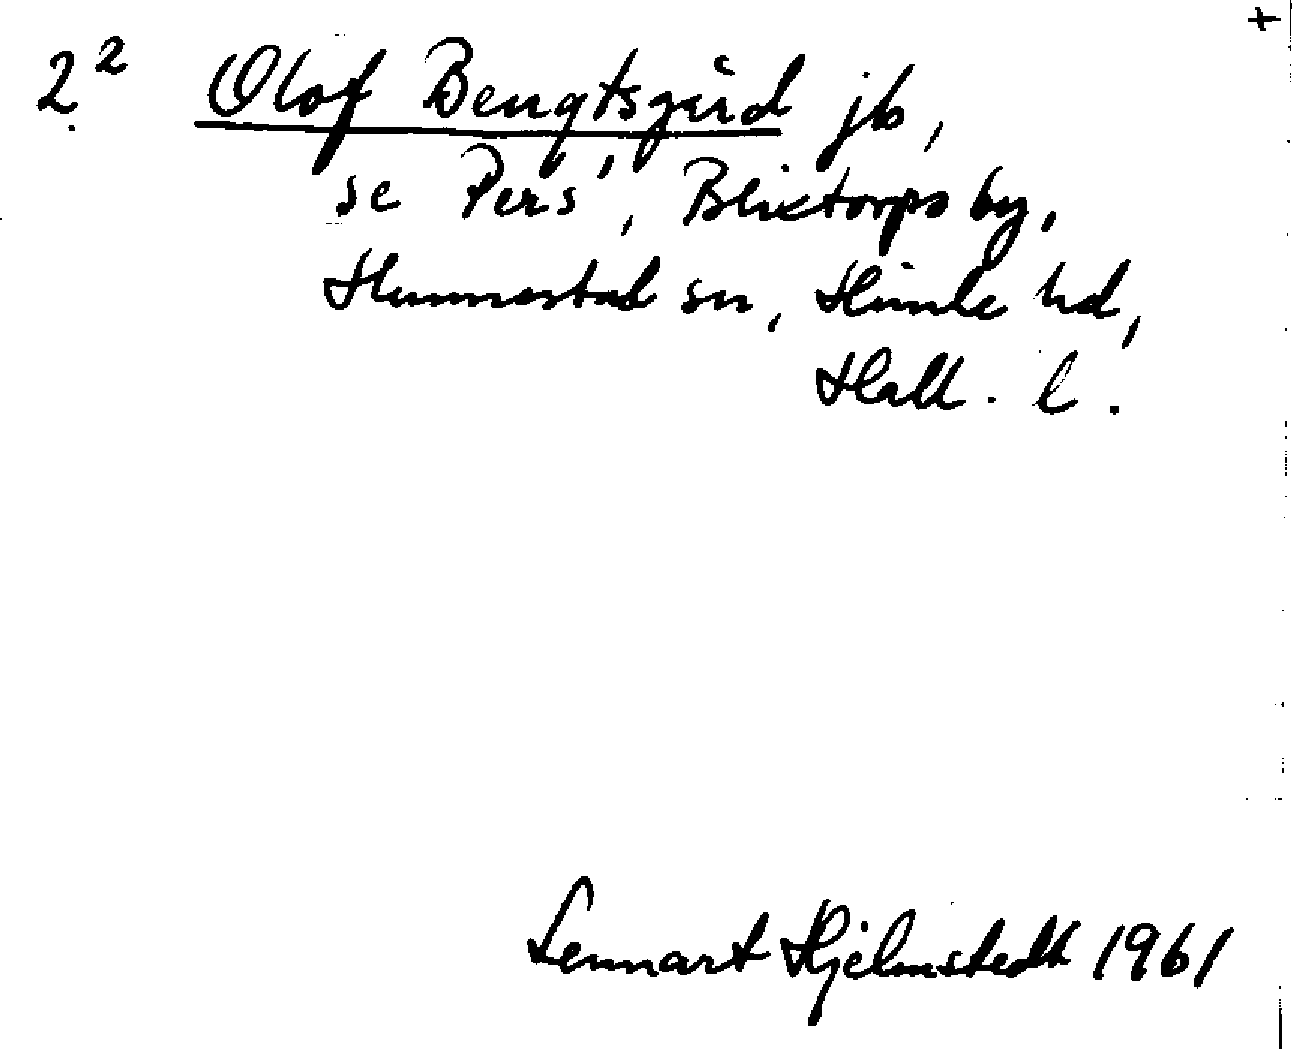 2² Olof Bengtsgård jb,
se Pers, Blixtorps by,
Hunnestad sn, Himle hd,
Hall. l.
Lennart Hjelmstedt 1961